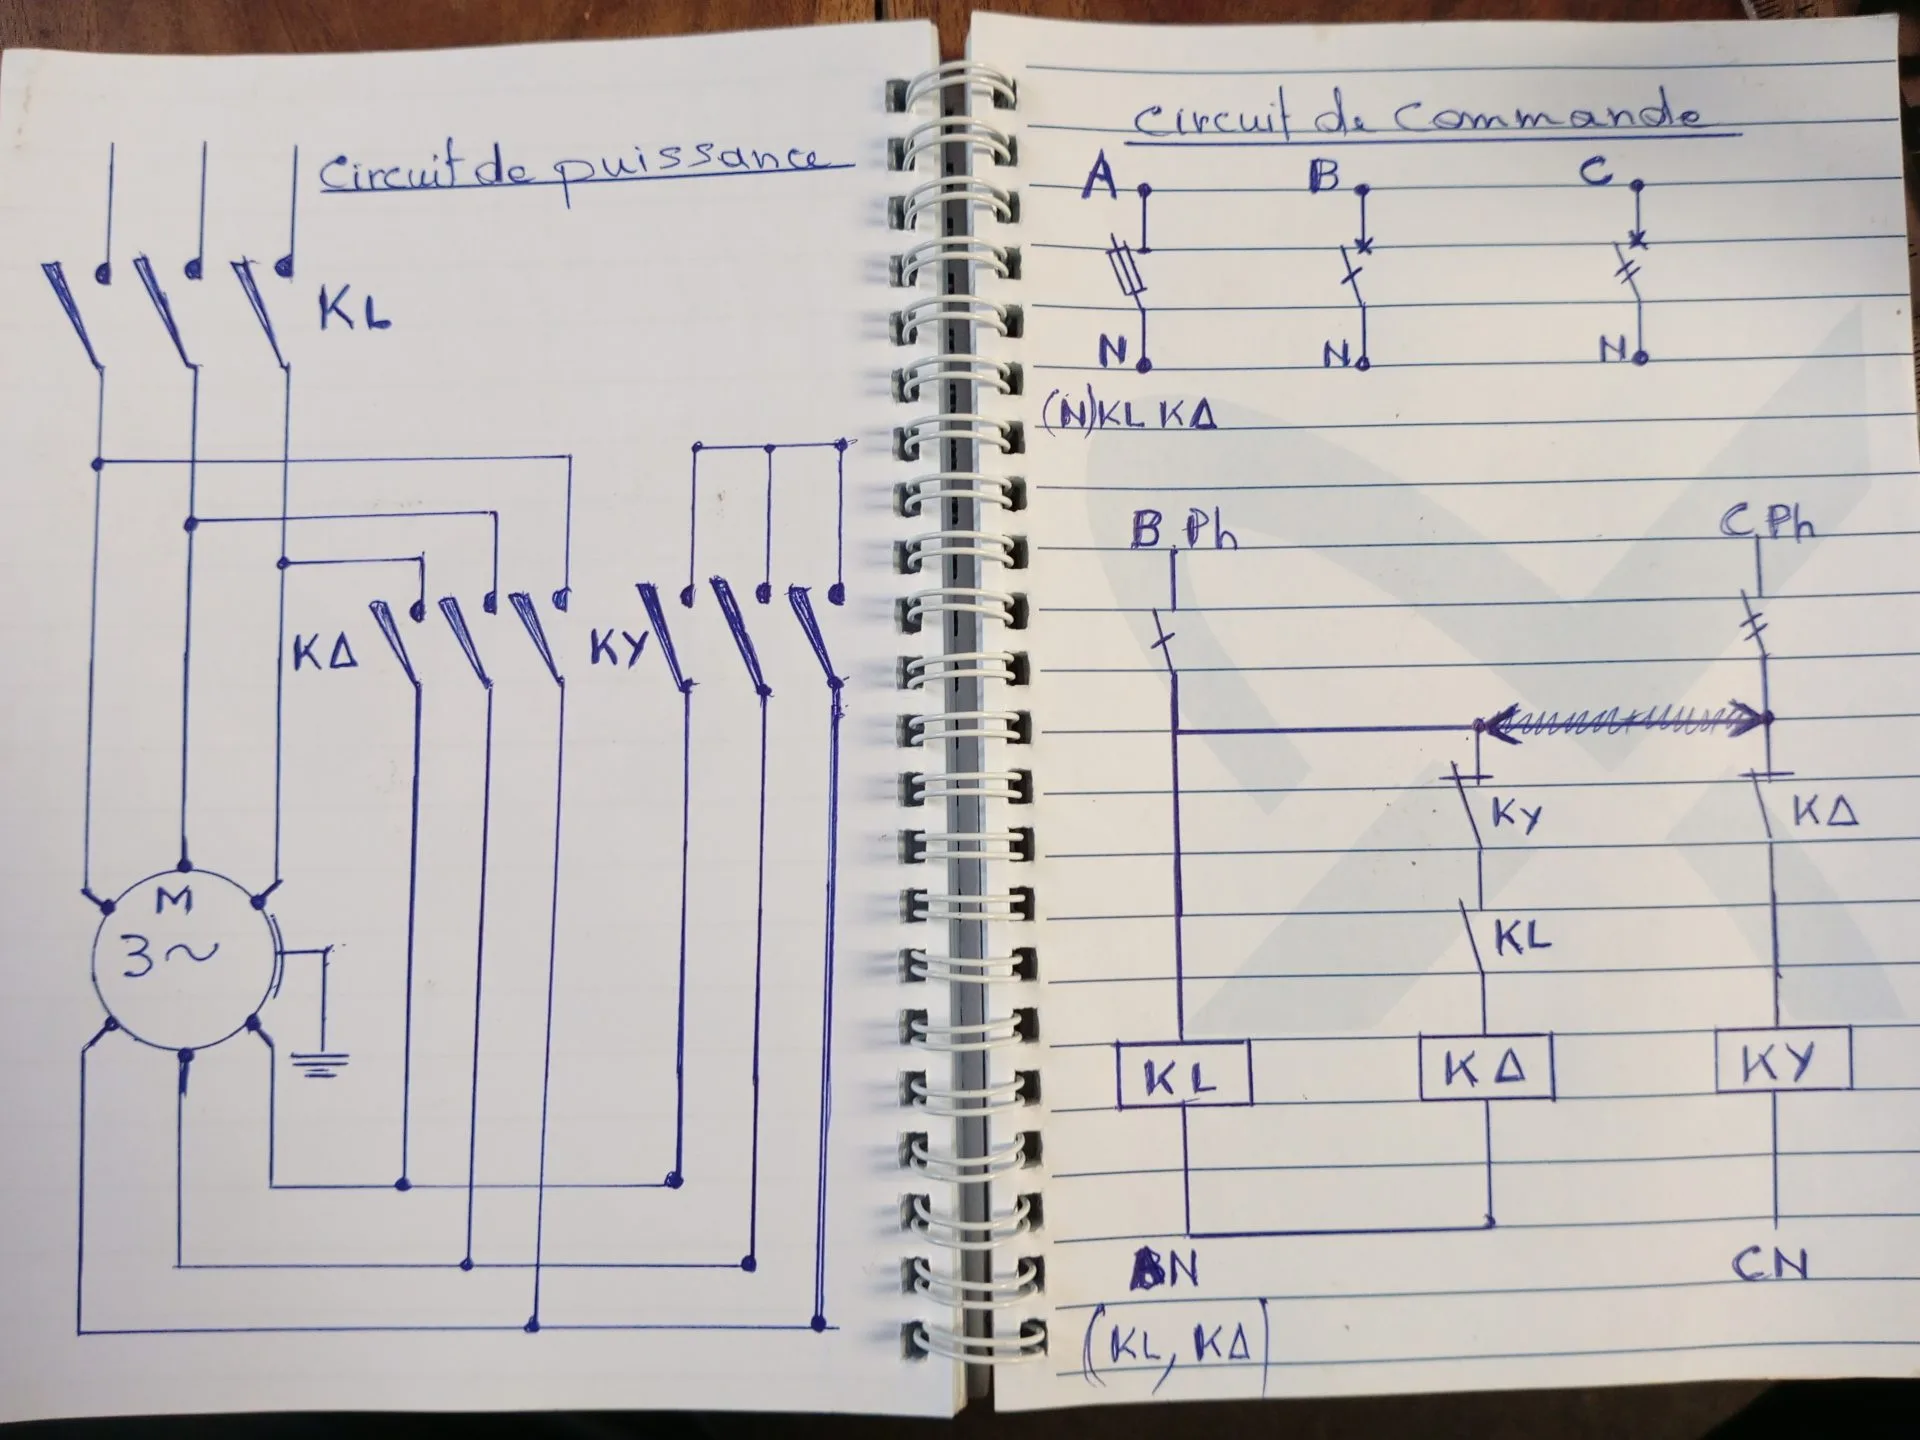 Circuit de puissance
KL
KΔ
KY
M
3~
Circuit de Commande
A B C
N N N
(N)KL KΔ
B Ph C Ph
Ky KΔ
KL
KL KΔ KY
BN CN
(KL, KΔ)